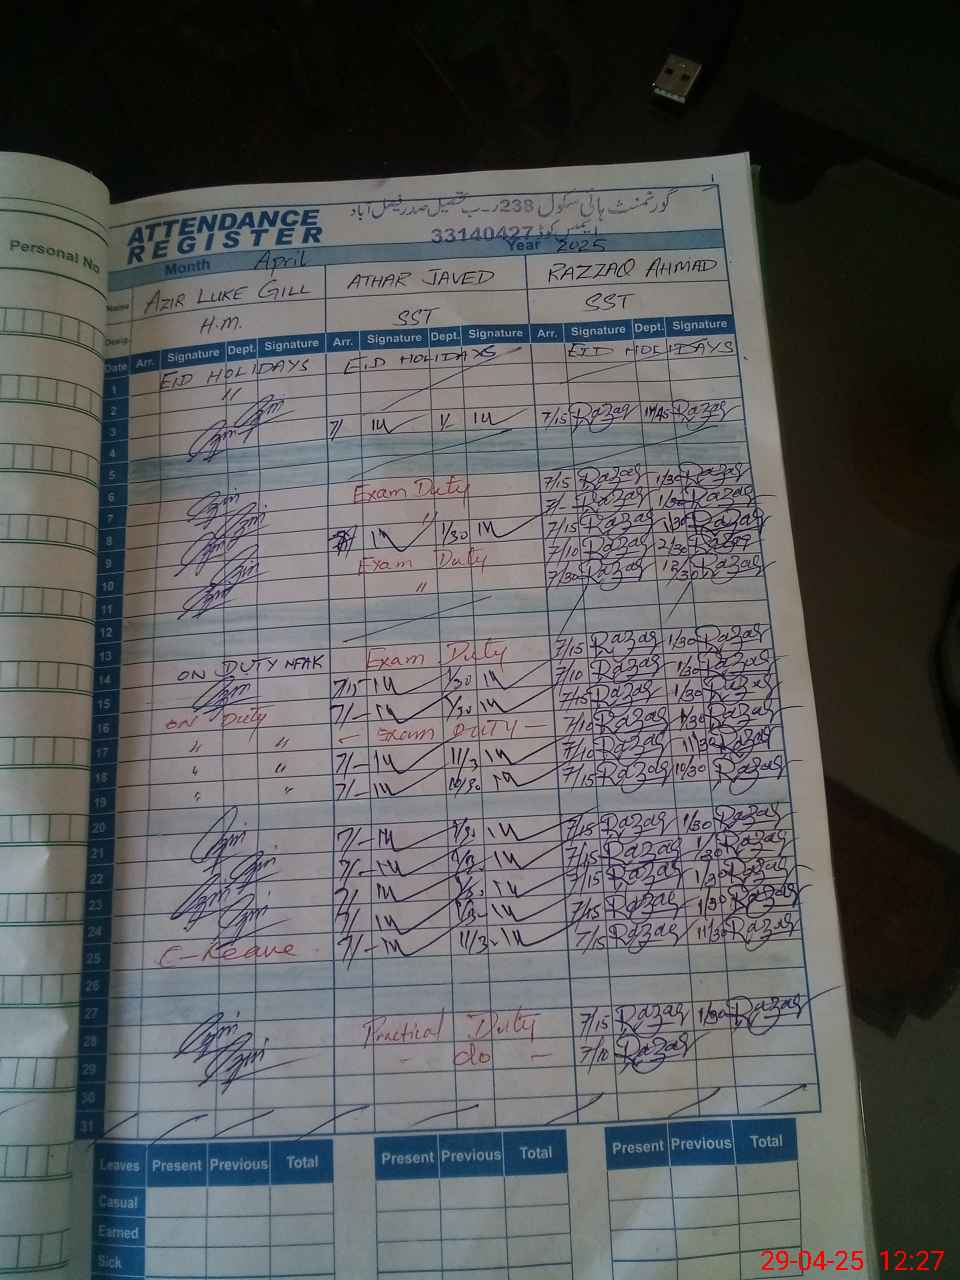 گورنمنٹ ہائی سکول 238ر۔ب تحصیل صدر فیصل آباد
ATTENDANCE
REGISTER
ایمس کوڈ 33140427
Personal No
Month April Year 2025
Name AZIR LUKE GILL ATHAR JAVED RAZZAQ AHMAD
Desig. H.M. SST SST
Date Arr. Signature Dept. Signature Arr. Signature Dept. Signature Arr. Signature Dept. Signature
1 EID HOLIDAYS EID HOLIDAYS EID HOLIDAYS
2 "
3 7/15 Razaq Razaq
4
5
6
7 Exam Duty 7/15 Razaq 1/30 Razaq
8 " 7/- Razaq 1/30 Razaq
9 1/30 7/15 Razaq 1/30 Razaq
10 Exam Duty 7/10 Razaq 2/30 Razaq
11 " 7/30 Razaq 12/30 Razaq
12
13
14 ON DUTY Exam Duty 7/15 Razaq 1/30 Razaq
15 7/15 1/30 7/10 Razaq 1/30 Razaq
16 ON Duty 7/- 1/30 7/15 Razaq 1/30 Razaq
17 " " - Exam DUTY - 7/10 Razaq 1/30 Razaq
18 " " 7/- 11/3 7/10 Razaq 11/30 Razaq
19 " " 7/- 10/30 7/15 Razaq 10/30 Razaq
20
21 7/- 1/30 7/15 Razaq 1/30 Razaq
22 7/- 7/15 Razaq 1/30 Razaq
23 7/ 7/15 Razaq 1/30 Razaq
24 7/ 7/15 Razaq 1/30 Razaq
25 C-Leave 7/- 11/3 7/15 Razaq 11/30 Razaq
26
27
28 Practical Duty 7/15 Razaq 1/30 Razaq
29 - do - 7/10 Razaq
30
31
Leaves Present Previous Total Present Previous Total Present Previous Total
Casual
Earned
Sick
29-04-25 12:27